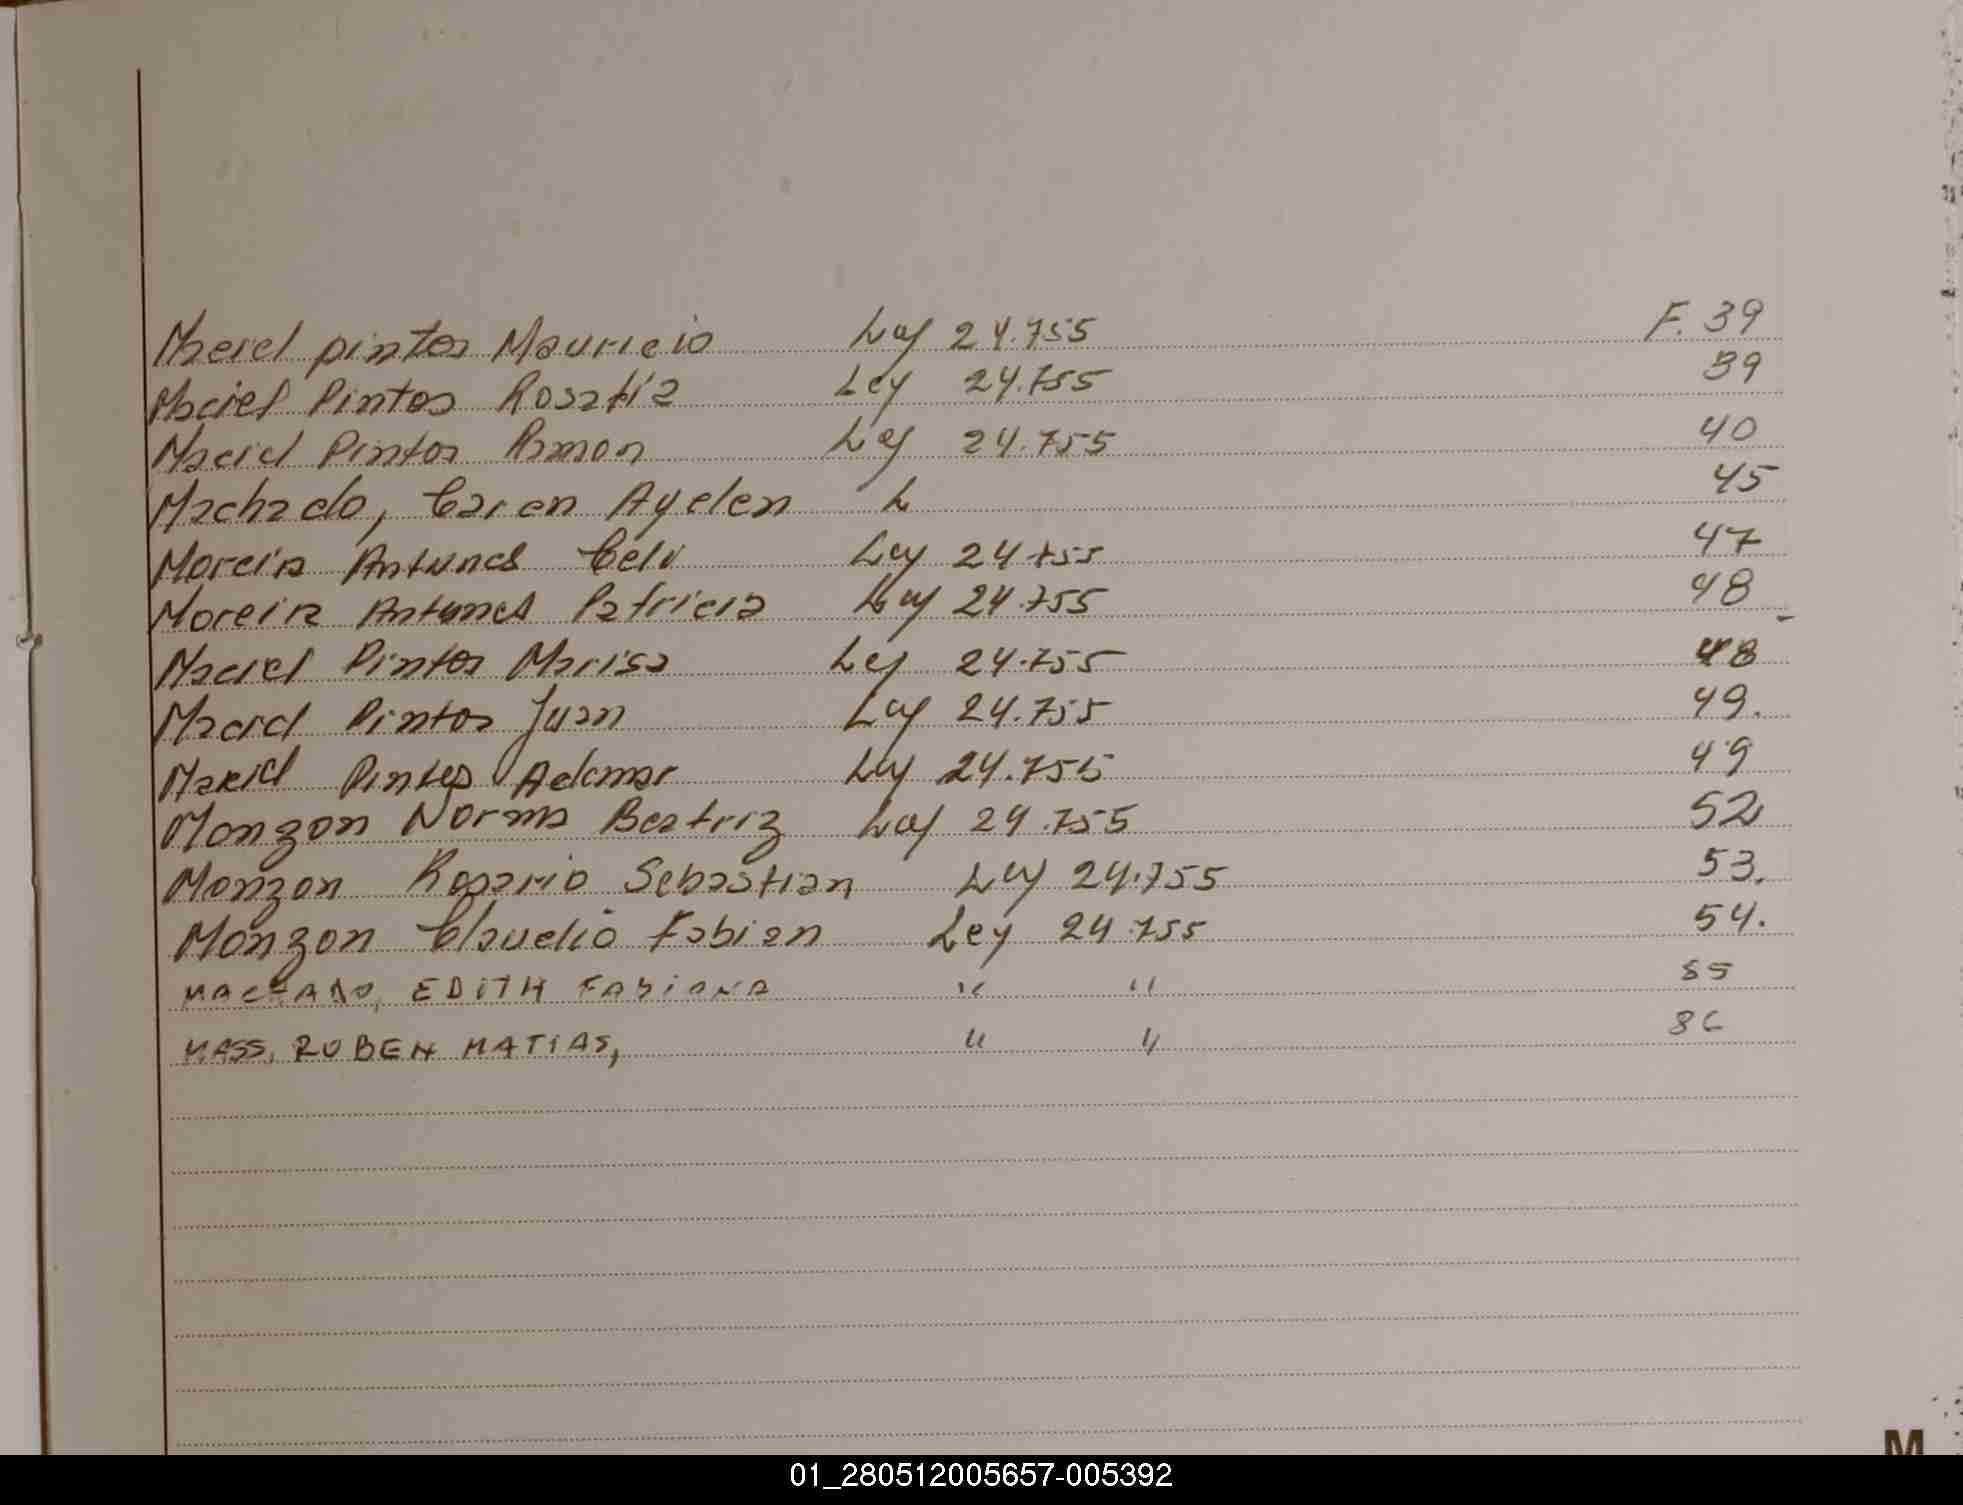 Maciel pintos Mauricio Ley 24.755 F. 39
Maciel Pintos Rosalia Ley 24.755 39
Maciel Pintos Ramon Ley 24.755 40
Machado, Caren Ayelen L 45
Moreira Antunes Celi Ley 24755 47
Moreira Antunes Patricia Ley 24.755 48
Maciel Pintos Marisa Ley 24.755 48
Maciel Pintos Juan Ley 24.755 49.
Maciel Pintos Ademar Ley 24.755 49
Monzon Norma Beatriz Ley 24.755 52
Monzon Rosario Sebastian Ley 24.755 53.
Monzon Claudio Fabian Ley 24.755 54.
MACHADO, EDITH FABIANA " " 85
MASS, RUBEN MATIAS, " " 86
M
01_280512005657-005392